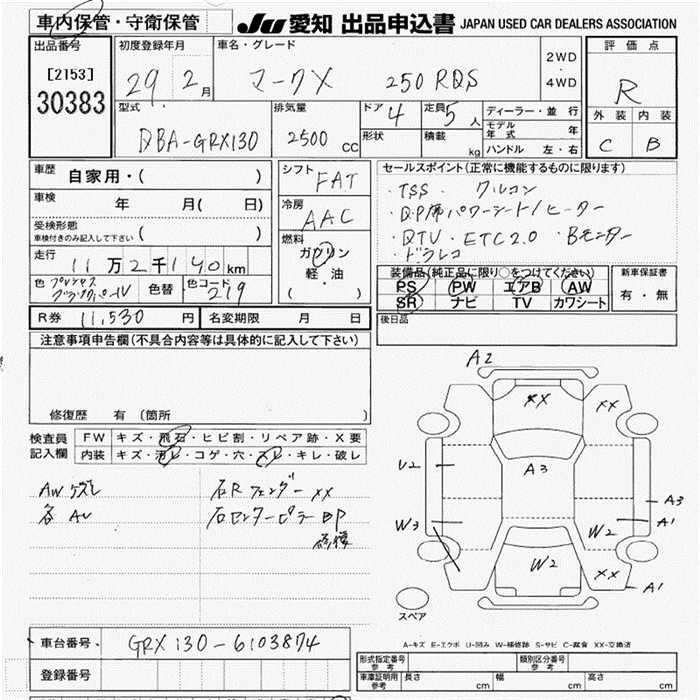 車内保管・守衛保管 JU 愛知 出品申込書 JAPAN USED CAR DEALERS ASSOCIATION
出品番号 初度登録年月 車名・グレード 2WD・4WD 評価点
[2153]
30383
29年2月 マークX 250 RDS R
型式 排気量 ドア 4 定員 5人 ディーラー・並行
DBA-GRX130 2500cc 形状 積載 kg モデル年式 年
ハンドル 左・右
外装 内装
C B
車歴 自家用・( )
シフト FAT
セールスポイント(正常に機能するものに限ります)
車検 年 月( 日)
冷房 AAC
・TSS ・クルコン
・D.P席パワーシート/ヒーター
受検形態
車検付きのみ記入して下さい( )
燃料 ガソリン
軽・油
・( )
・DTV ・ETC2.0 ・Bモニター
・ドラレコ
走行 11万2千140km
色 プレシャスブラックパール 色替 色コード 219
装備品(純正品に限り○をつけてください)
PS PW エアB AW
SR ナビ TV カワシート
新車保証書
有・無
R券 11,530円 名変期限 月 日
後日品
注意事項申告欄(不具合内容等は具体的に記入して下さい)
修復歴 有 (箇所
検査員記入欄 FW キズ・飛石・ヒビ割・リペア跡・X要
内装 キズ・汚レ・コゲ・穴・スレ・キレ・破レ
AWケズレ
各AU
右Rフェンダー XX
右センターピラー BP
修復
A2
XX XX
U2 A3 A3
A1
W3 W2
W2 XX A1
スペア
A-キズ E-エクボ U-凹み W-補修跡 S-サビ C-腐食 XX-交換済
車台番号 GRX130-6103874
登録番号
形式指定番号 参考 類別区分番号 参考
車庫証明用 参考 長さ cm 幅 cm 高さ cm